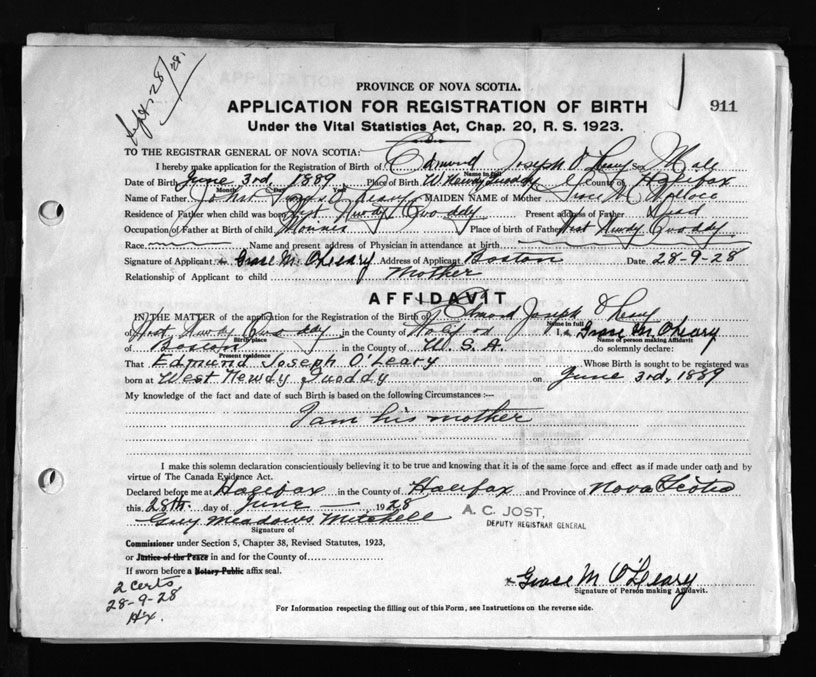 Sept. 28/28.
PROVINCE OF NOVA SCOTIA.
APPLICATION FOR REGISTRATION OF BIRTH
911
Under the Vital Statistics Act, Chap. 20, R. S. 1923.
TO THE REGISTRAR GENERAL OF NOVA SCOTIA:
I hereby make application for the Registration of Birth of Edmund Joseph O'Leary Sex Male
Name in full
Date of Birth June 3rd, 1889 Place of Birth W. Newdy Quoddy County of Halifax
Month Day Year
Name of Father John O'Leary MAIDEN NAME of Mother Grace M.
Residence of Father when child was born West Newdy Quoddy Present address of Father Dead
Occupation of Father at Birth of child Place of birth of Father West Newdy Quoddy
Race Name and present address of Physician in attendance at birth
Signature of Applicant x Grace M. O'Leary Address of Applicant Boston Date 28-9-28
Relationship of Applicant to child Mother
AFFIDAVIT
IN THE MATTER of the application for the Registration of the Birth of Edmond Joseph O'Leary
Name in full
of West Newdy Quoddy in the County of Halifax I, Grace M. O'Leary
Birth place Name of person making Affidavit
of Boston in the County of U.S.A. do solemnly declare:
Present residence
That Edmund Joseph O'Leary Whose Birth is sought to be registered was
born at West Newdy Quoddy on June 3rd, 1889
My knowledge of the fact and date of such Birth is based on the following Circumstances :—
I am his mother
I make this solemn declaration conscientiously believing it to be true and knowing that it is of the same force and effect as if made under oath and by
virtue of The Canada Evidence Act.
Declared before me at Halifax in the County of Halifax and Province of Nova Scotia
this 28th day of June 1928
Guy Meadows Mitchell
A. C. JOST,
DEPUTY REGISTRAR GENERAL
Signature of
Commissioner under Section 5, Chapter 38, Revised Statutes, 1923,
or Justice of the Peace in and for the County of
If sworn before a Notary Public affix seal.
2 Certs
28-9-28
Hx.
x Grace M O'Leary
Signature of Person making Affidavit.
For Information respecting the filling out of this Form, see Instructions on the reverse side.